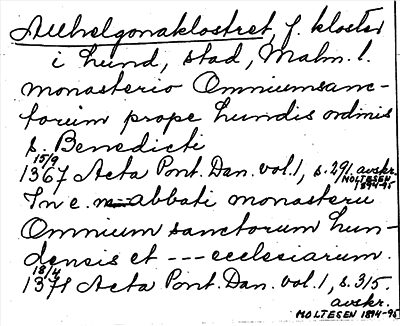 Allhelgonaklostret, f. kloster
i Lund, stad, Malm. l.
monasterio Omniumsanc-
torum prope Lundis ordinis
s. Benedicti
15/9
1367 Acta Pont. Dan. vol. 1, s. 291. avskr.
MOLTESEN
1894-95
In c. abbati monasterii
Omnium sanctorum Lun-
densis et --- ecclesiarum.
18/4
1371 Acta Pont. Dan. vol. 1, s. 315.
avskr.
MOLTESEN 1894-95